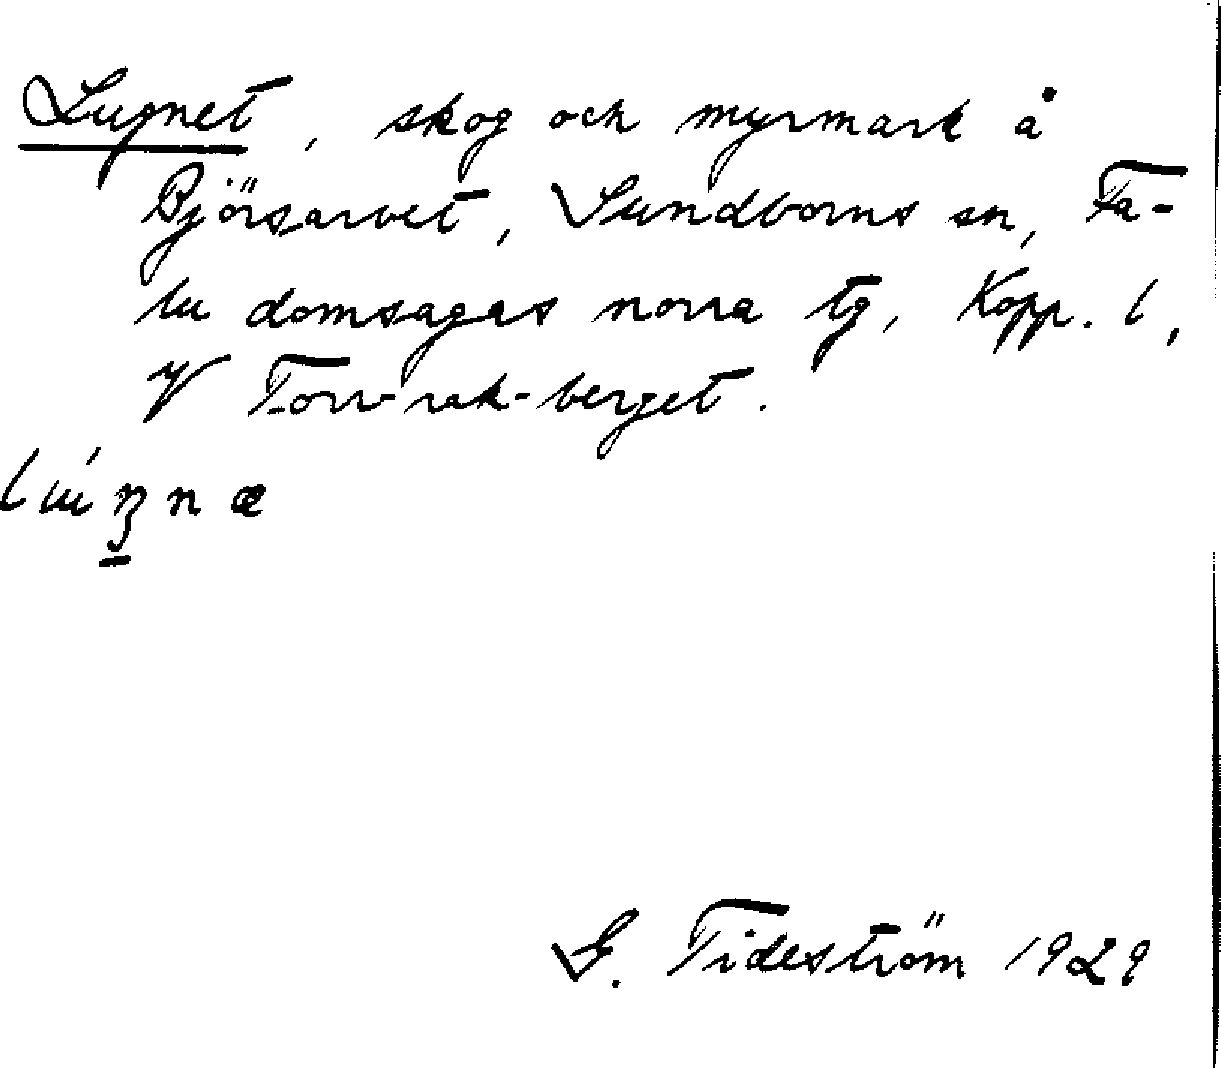 Lugnet, skog och myrmark å
Björsarvet, Sundborns sn, Fa-
lu domsagas norra tg, Kopp. l,
V Torv-rak-berget.
G. Tideström 1929